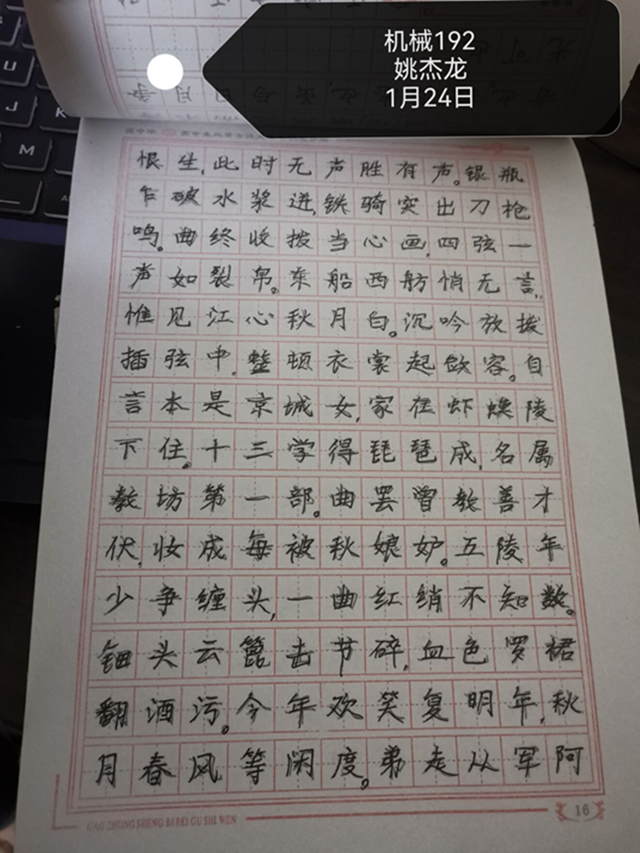 机械192
姚杰龙
1月24日
恨生,此时无声胜有声。银瓶
乍破水浆迸,铁骑突出刀枪
鸣。曲终收拨当心画,四弦一
声如裂帛。东船西舫悄无言,
惟见江心秋月白。沉吟放拨
插弦中,整顿衣裳起敛容。自
言本是京城女,家在虾蟆陵
下住。十三学得琵琶成,名属
教坊第一部。曲罢曾教善才
伏,妆成每被秋娘妒。五陵年
少争缠头,一曲红绡不知数。
钿头云篦击节碎,血色罗裙
翻酒污。今年欢笑复明年,秋
月春风等闲度。弟走从军阿
16
GAO ZHONG SHENG BI BEI GU SHI WEN